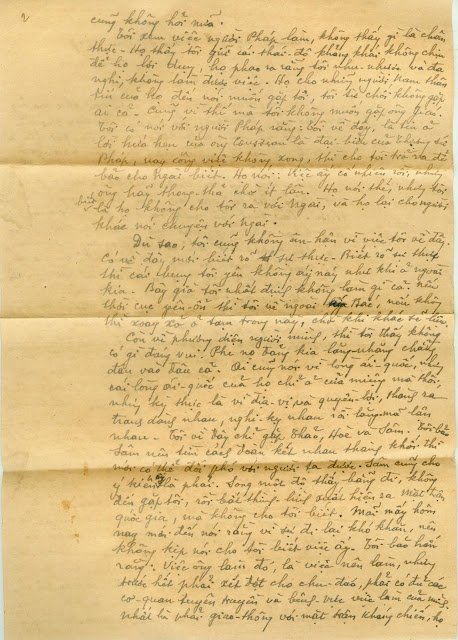 2
cũng không hỏi nữa.
Tôi xem việc người Pháp làm, không thấy gì là chân
thực - Họ thấy tôi giữ cái thái-độ không phải không chịu
để họ lợi dụng, họ phao ra rằng tôi nhu-nhược và đa
nghi, không làm được việc. Họ cho những người Nam thân
tín của họ đến nói muốn gặp tôi, tôi từ chối không gặp
ai cả. Cũng vì thế mà tôi không muốn gặp ông
Tôi có nói với người Pháp rằng: tôi về đây, là tin ở
lời hứa hẹn của ông Cousseau là đại-biểu của
Pháp, nay công việc không xong, thì cho tôi trở ra để
bảo cho Ngài biết. Họ nói: Việc ấy cố nhiên rồi, nhưng
ông hãy thong-thả chờ ít lâu. Họ nói thế, nhưng tôi
biết là họ không cho tôi ra với Ngài, và họ lại cho người
khác nói chuyện với Ngài.
Dù sao, tôi cũng không ân-hận về việc tôi về đây.
Có về đây mới biết rõ sự thực. Biết rõ sự thực
thì cái bụng tôi yên không áy náy như khi ở ngoài
kia - Bây giờ tôi nhất định không làm gì cả. nếu
thời cục yên-ổn thì tôi về ngoài Bắc, nếu không
thì xoay xở ở tạm trong này, chờ khi khác sẽ liệu.
Còn về phương diện người mình, thì tôi thấy không
có gì đáng vui. Phe nọ đảng kia lăng-nhăng chẳng
đâu vào đâu cả. Ai cũng nói vì lòng ái-quốc, nhưng
cái lòng ái-quốc của họ chỉ ở cửa miệng mà thôi,
nhưng kỳ thực là vì địa-vị và quyền-lợi, thành ra
tranh dành nhau, nghi-kỵ nhau rồi lăng-mạ lẫn
nhau - Tôi về đây chỉ gặp Thảo, Hoè và Sâm. Tôi bảo
Sâm nên tìm cách đoàn kết nhau thành khối thì
mới có thể đối phó với người ta được. Sâm cũng cho
ý kiến ấy là phải. Song một độ thấy hắn đi, không
đến gặp tôi, rồi bất thình lình xuất hiện ra mặt trận
quốc gia, mà không cho tôi biết. Mãi mấy hôm
nay mới đến nói rằng vì sự đi lại khó khăn, nên
không kịp nói cho tôi biết việc ấy. Tôi bảo hắn
rằng: Việc ông làm đó, là việc nên làm, nhưng
trước hết phải xếp đặt cho chu-đáo, phải có đủ các
cơ-quan tuyên truyền và bênh-vực việc làm của mình,
nhất là phải giao-thông với mặt trận kháng chiến, họ